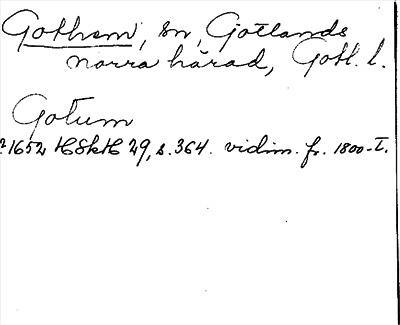 Gothem, sn, Gotlands
norra härad, Gotl. l.
Gotum
? 1652 HSkH 29, s. 364. vidim. fr. 1800-t.